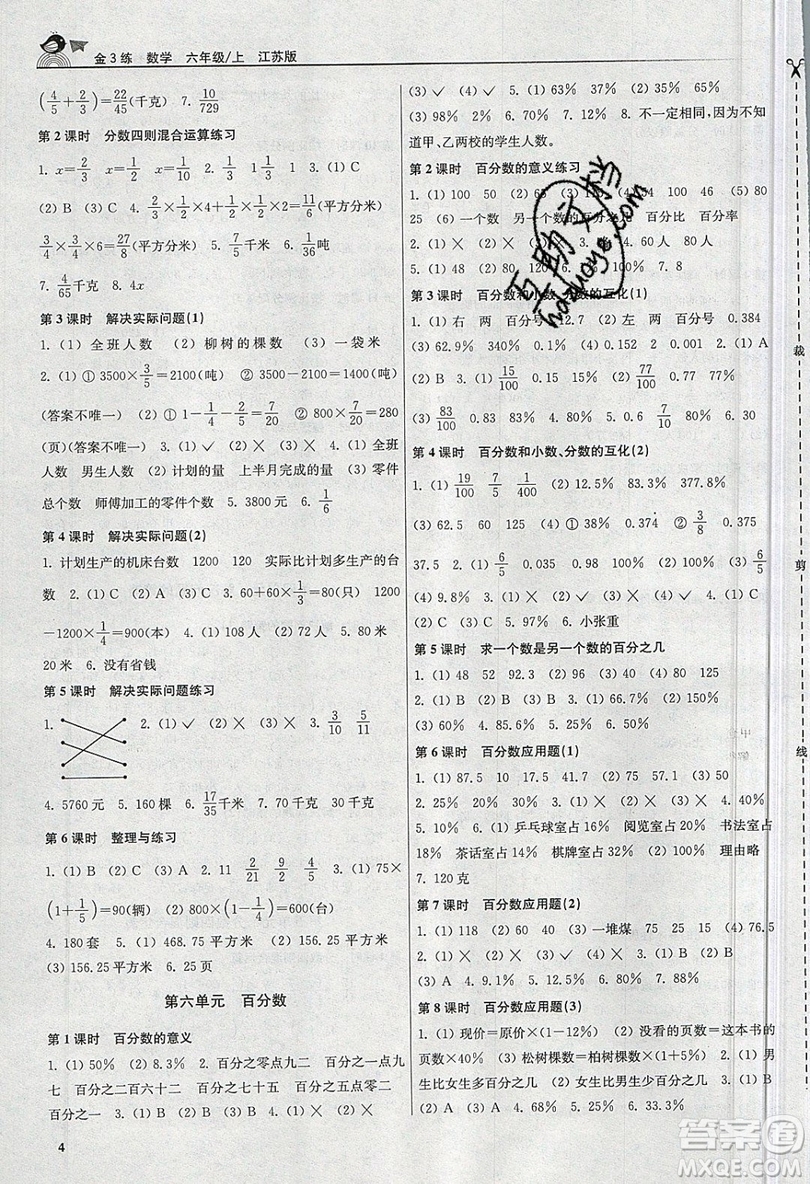 金3练 数学 六年级/上 江苏版
(4/5+2/3)=22/45(千克) 7. 10/729
第2课时 分数四则混合运算练习
1. x=2/3 x=4/3 x=1/2 2. 1/3 1 1/3 3. (1) C
(2) B (3) C 4. 3/2×1/2×4+1/2×1/2×2+
3/4×3/4×6=27/8(平方分米) 5. 7/5吨 6. 1/16吨
7. 4/65千克 8. 4x
第3课时 解决实际问题(1)
1. (1) 全班人数 (2) 柳树的棵数 (3) 一袋米
2. (1) ① 3500×3/5=2100(吨) ② 3500×2/5=1400(吨)
(答案不唯一) (2) ① 1-1/4-2/5=7/20 ② 800×7/20=280
(页)(答案不唯一) 3. (1) ✓ (2) × (3) ✓ 4. (1) 全班
人数 男生人数 (2) 计划的量 上半月完成的量 (3) 零件
总个数 师傅加工的零件个数 5. 3800元 6. 1/6
第4课时 解决实际问题(2)
1. 计划生产的机床台数 1200 120 实际比计划多生产的台
数 2. (1) C (2) A (3) C 3. 60+60×1/3=80(只) 1200
-1200×1/4=900(本) 4. (1) 108人 (2) 72人 5. 10米
20米 6. 没有省钱
第5课时 解决实际问题练习
1. 2. (1) ✓ (2) × (3) × 3. 3/10 5/11
4. 5760元 5. 160棵 6. 17/35千米 7. 30千克 70千克
第6课时 整理与练习
1. (1) B (2) A (3) C 2. 11 2/21 9/2 4/9 3. (1) 90×
(1+1/3)=120(辆) (2) 800×(1-1/4)=600(千克)
4. 180套 5. (1) 468.75平方米 (2) 312.5平方米
(3) 156.25平方米 6. 25页
第六单元 百分数
第1课时 百分数的意义
1. (1) 50% (2) 8.3% 2. 百分之零点九二 百分之九十
七 百分之二百六十二 百分之七十五 百分之五点零二
百分之一 3. (1) B (2) C (3) D 4. (1) × (2) ×
4
(3) ✓ (4) × (5) ✓ 5. (1) 160% (2) 100%
(3) 98% 2% 6. 70% 7. 110% 8. 不一定相同,因为不知
道甲、乙两校的学生人数。
第2课时 百分数的意义练习
1. (1) 100 50 (2) 60 (3) 110 (4) 54 (5) 100
25 (6) 一个数 另一个数的百分之几 百分比 百分率
2. (1) × (2) × (3) ✓ 3. A 4. 60人 80人
5. (1) 25 50 (2) 80 120 6. 108% 7. 8
第3课时 百分数和小数、分数的互化(1)
1. (1) 右 两 百分号 12.7 (2) 左 两 百分号 0.384
(3) 62.9% 340% (4) 0.152 0.043 2. (1) A
(2) B 3. (1) 15/100 0.15 15% (2) 77/100 0.77 77%
(3) 83/100 0.83 83% 4. 80% 5. 0.6 7/10 80% 6. 30
第4课时 百分数和小数、分数的互化(2)
1. (1) 19/100 7/5 1/400 (2) 12.5% 83.3% 377.8%
(3) 62.5% 42.9% 38% (4) ① 0.374 ② 3/8 0.375
37.5 2. (1) 6/5 0.035 130% (2) 0.076 120% (3) 6/5
(4) 9.8% 3. (1) × (2) × (3) ✓ 4. (1) B
(2) C (3) C 5. 97% 6. 小张重
第5课时 求一个数是另一个数的百分之几
1. (1) 48 52 92.3 (2) 96 (3) 60 (4) 80 125
2. (1) D (2) B (3) A 3. (1) 75% (2) 133.3%
(3) 60% 4. 85.7% 5. 125% 6. 50%
第6课时 百分数应用题(1)
1. (1) 87.5 10 (2) 25 500 75 37.5 (3) 50
2. 25% 3. (1) × (2) × (3) × (4) × 4. 40%
5. 10% 6. (1) 乒乓球室占10% 阅览室占26% 书法室占
18% 茶话室占14% 棋牌室占21% (2) 电脑室占11%
7. 120克
第7课时 百分数应用题(2)
1. (1) 208 (2) 60 (3) 一堆煤 75 25 15 (4) 76.5
2. (1) × (2) × (3) × (4) ✓ 3. (1) B (2) A
(3) C 4. 25% 5. 80% 6. 20%
第8课时 百分数应用题(3)
1. (1) 现价=原价×(1-12%) (2) 没看的页数=这本书
的页数×40% (3) 松树棵数=柏树棵数×(1+5%) 2. (1) 男
生比女生多20% (2) 女生比男生少百分之几 3. (1) B
(2) A (3) A 4. 50% 5. 15% 6. 33.3%
裁
剪
线
互助文档
hdzuoye.com
答案圈
MXQE.COM